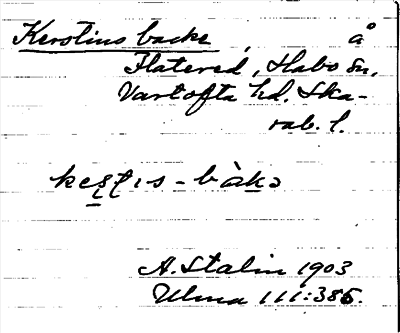 Kerstins backe, å
Flatered, Habo sn,
Vartofta hd. Ska-
rab. l.
A. Stalin 1903
Ulma 111:385.